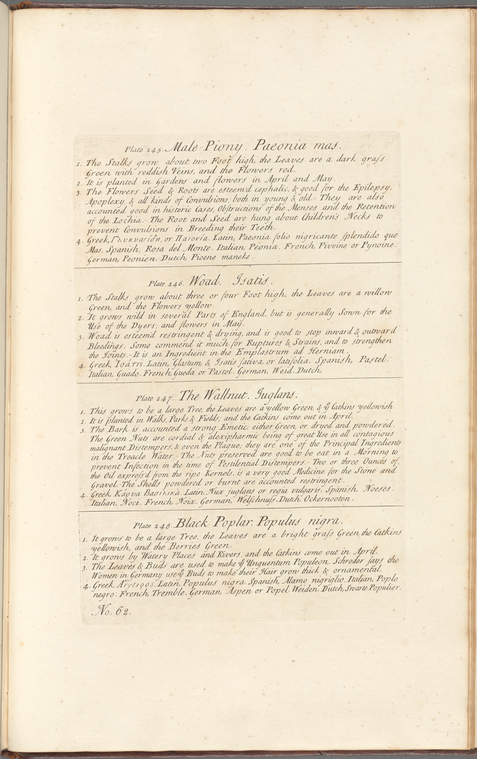 Plate 245. Male Piony. Paeonia mas.
1. The Stalks grow about two Foot high, the Leaves are a dark grass
Green with reddish Veins, and the Flowers red.
2. It is planted in Gardens and flowers in April and May.
3. The Flowers Seed & Roots are esteem'd cephalic, & good for the Epilepsy,
Apoplexy, & all kinds of Convulsions, both in young & old. They are also
accounted good in histeric Cases, Obstructions of the Menses, and the Retention
of the Lochia. The Root and Seed are hung about Children's Necks to
prevent Convulsions in Breeding their Teeth.
4. Greek, Γλυκυσίδη, or Παιονία. Latin, Paeonia folio nigricante splendido que
Mas. Spanish, Rosa del Monte. Italian, Peonia. French, Pivoine or Pynoine.
German, Peonien. Dutch, Pioene maneke.
Plate 246. Woad. Isatis.
1. The Stalks grow about three or four Foot high, the Leaves are a willow
Green, and the Flowers yellow.
2. It grows wild in several Parts of England, but is generally Sown for the
Use of the Dyers; and flowers in May.
3. Woad is esteemd restringent & drying, and is good to stop inward & outward
Bleedings. Some commend it much for Ruptures & Strains, and to strengthen
the Joints. It is an Ingredient in the Emplastrum ad Herniam.
4. Greek, Ἰσάτις. Latin, Glastum & Isatis sativa, or latifolia. Spanish, Pastel.
Italian, Guado. French, Gueda or Pastel. German, Weid. Dutch.
Plate 247. The Wallnut. Juglans.
1. This grows to be a large Tree, the Leaves are a yellow Green, & ye Catkins yellowish
2. It is planted in Walks, Parks & Fields; and the Catkins come out in April.
3. The Bark is accounted a strong Emetic, either Green, or dryed and powdered.
The Green Nuts are cordial & alexipharmic being of great Use in all contagious
malignant Distempers, & even the Plague; they are one of the Principal Ingredients
in the Treacle Water. The Nut preserved are good to be eat in a Morning to
prevent Infection in the time of Pestilential Distempers. Two or three Ounces of
the Oil express'd from the ripe Kernels, is a very good Medicine for the Stone and
Gravel. The Shells powdered or burnt are accounted restringent.
4. Greek, Κάρυα Βασιλικὰ. Latin, Nux juglans or regia vulgaris. Spanish, Noeses.
Italian, Noci. French, Noix. German, Welschnuss. Dutch, Ockernooten.
Plate 248. Black Poplar. Populus nigra.
1. It grows to be a large Tree, the Leaves are a bright grass Green, the Catkins
yellowish, and the Berries Green.
2. It grows by Watery Places and Rivers, and the Catkins come out in April.
3. The Leaves & Buds are used to make ye Unguentum Populeon. Schroder says the
Women in Germany use ye Buds to make their Hair grow thick & ornamental.
4. Greek, Latin, Populus nigra. Spanish, Alamo nigriglio. Italian, Poplo
negro. French, Tremble. German, Aspen or Popel Weiden. Dutch, Swarte Populier.
No. 62.